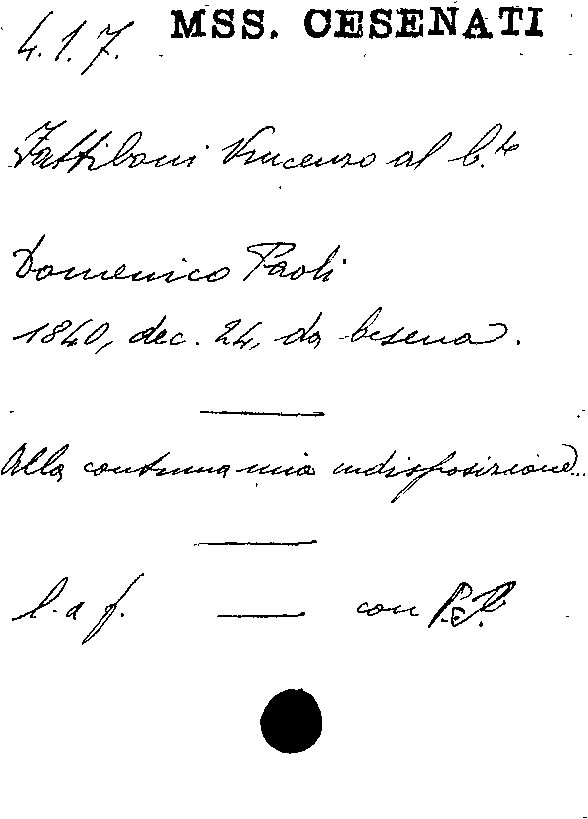 4.1.7. MSS. CESENATI
Fattiboni Vincenzo al C.te
Domenico Paoli
1840, dec. 24, da Cesena.
Alla continua mia indisposizione...
l. a f. — con P.S.